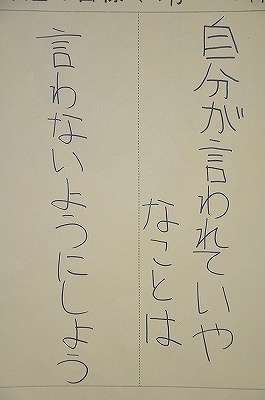 自分が言われていや
なことは
言わないようにしよう